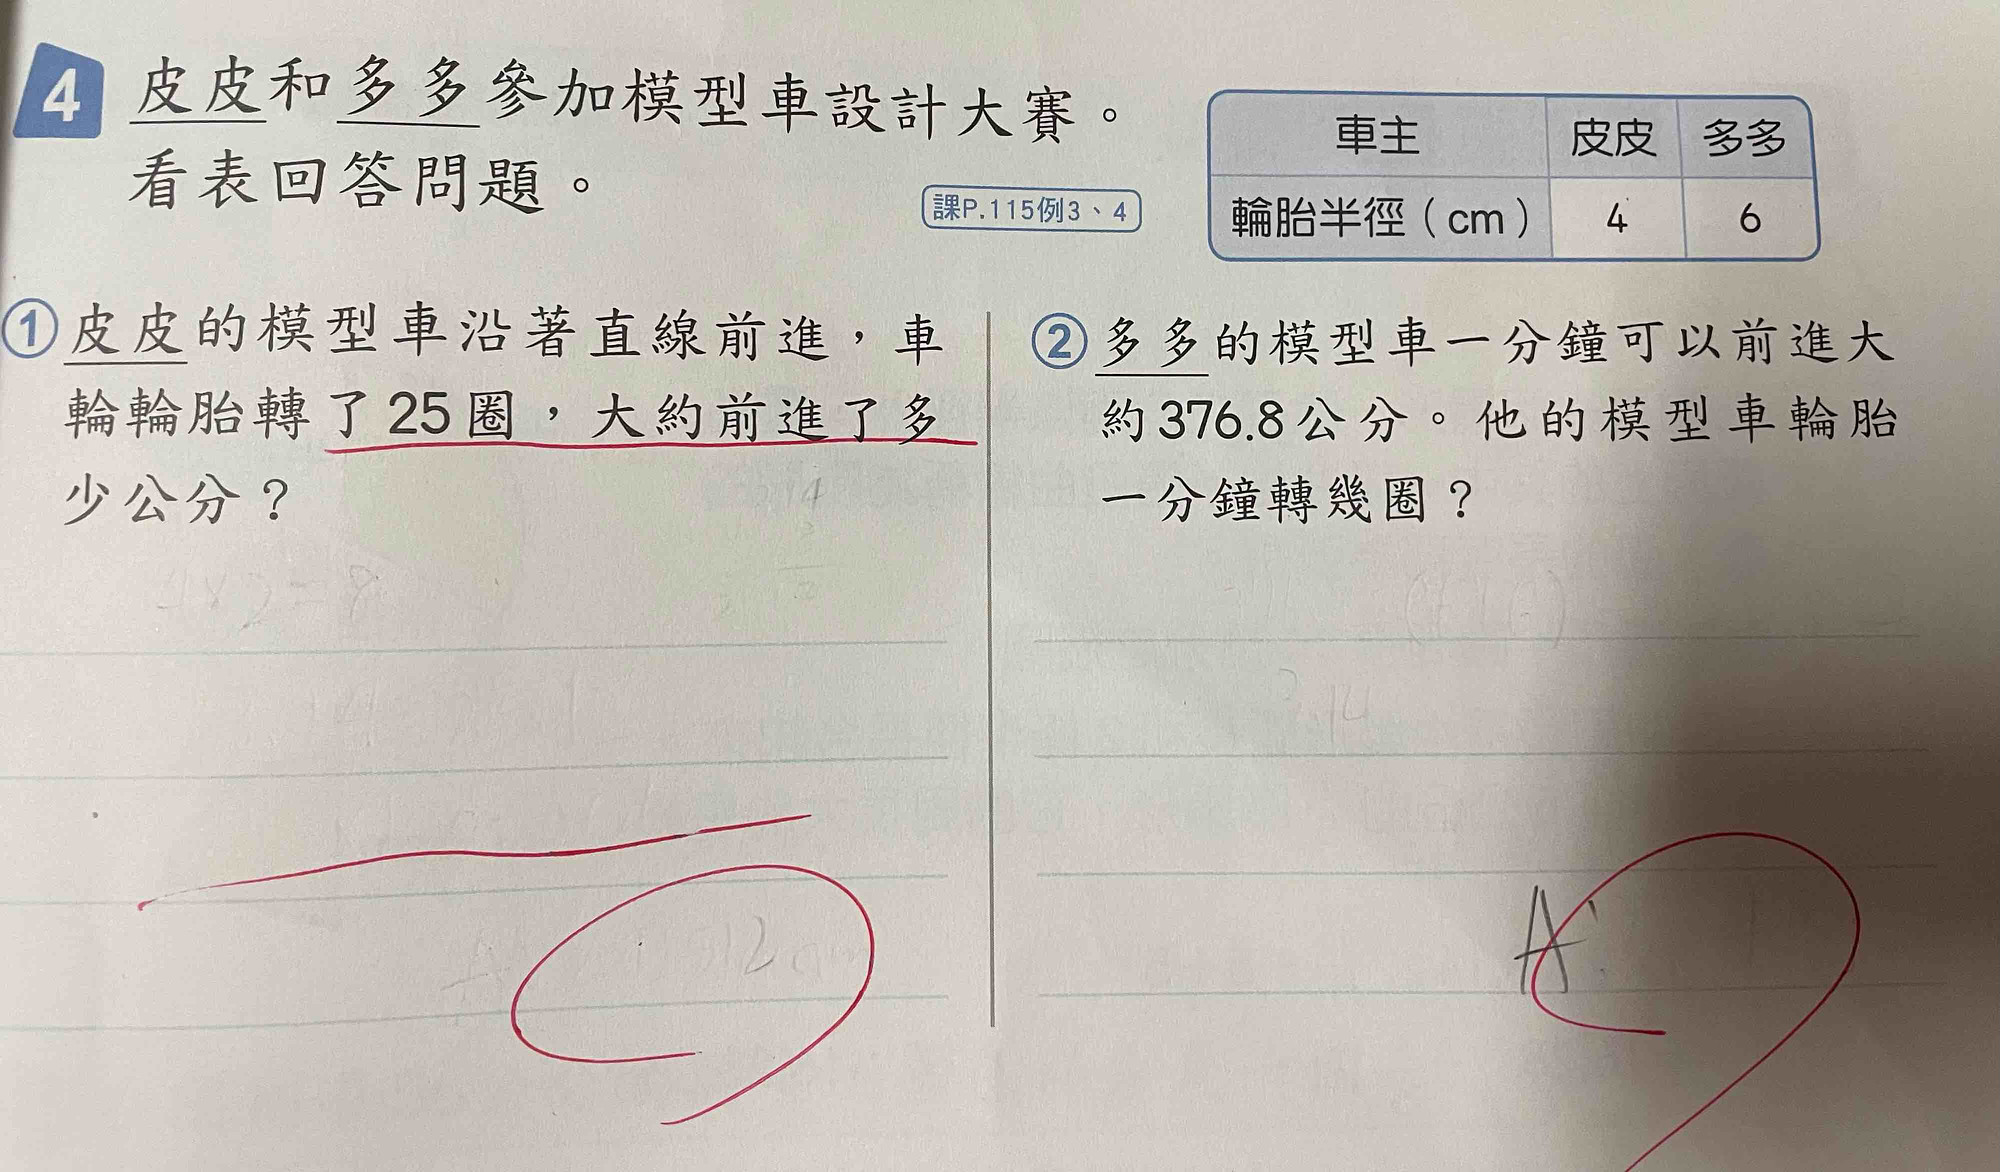 4 皮皮和多多參加模型車設計大賽。
看表回答問題。
課P.115例3、4
車主 皮皮 多多
輪胎半徑（cm） 4 6
①皮皮的模型車沿著直線前進，車
輪輪胎轉了25圈，大約前進了多
少公分？
②多多的模型車一分鐘可以前進大
約376.8公分。他的模型車輪胎
一分鐘轉幾圈？
4×2=8
3.14
A: